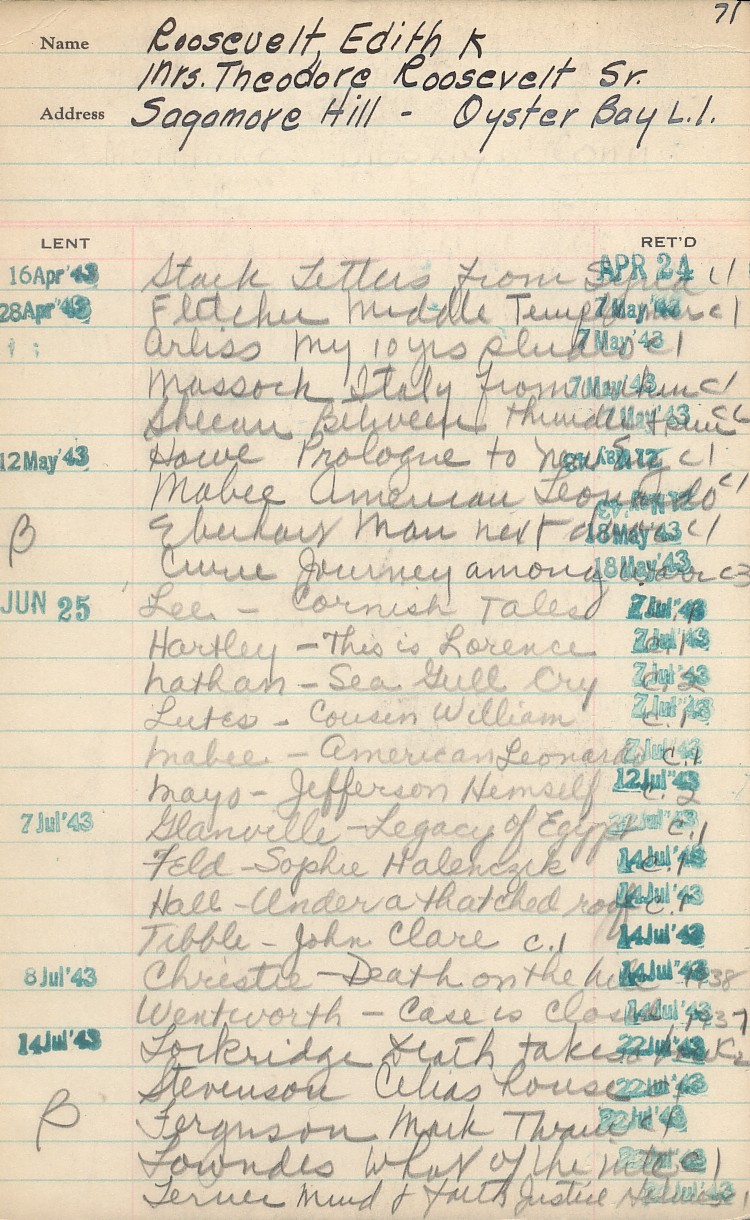 71
Name Roosevelt, Edith K
Mrs. Theodore Roosevelt Sr.
Address Sagamore Hill - Oyster Bay L.I.
LENT RET'D
16Apr'43 Stark Letters from Syria APR 24 c1
28Apr'43 Fletcher Middle Temple 7May'43 c1
Arliss My 10 yrs 7May'43 c1
Massock Italy from within 7May'43 c1
Sheean Between thunder + sun 7May'43
12May'43 Howe Prologue to New Eng c1
Mabee American Leonardo c1
B Eberhart Man next door 18May'43 c1
Curie Journey among 18May'43 c3
JUN 25 Lee - Cornish Tales 7Jul'43
Hartley - This is Lorence 7Jul'43 c.1
Nathan - Sea Gull Cry 7Jul'43 c.2
Lutes - Cousin William 7Jul'43 c.1
Mabee - American Leonardo 7Jul'43 c.1
Mayo - Jefferson Hemself 12Jul'43 c.2
7Jul'43 Glanville - Legacy of Egypt c.1
Feld - Sophie Halenczik 14Jul'43 c.1
Hall - Under a thatched roof 14Jul'43 c.1
Tibble - John Clare c.1 14Jul'43
8Jul'43 Christie - Death on the Nile 14Jul'43 1938
Wentworth - Case is Closed 14Jul'43 1937
14Jul'43 Lockridge Death takes 22Jul'43
Stevenson Celias house 22Jul'43 c1
B Ferguson Mark Twain 22Jul'43 c1
Lowndes What of the c1
Lerner Mind & Faith Justice Holmes